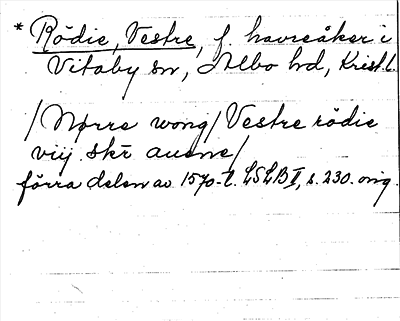 * Rödie, Vestre, f. havreåker i
Vitaby sn, Albo hd, Krist.l.
/Nørre wong/ Vestre rödie
viij skr auene/
förra delen av 1570-t. LSLB II, s. 230. orig.